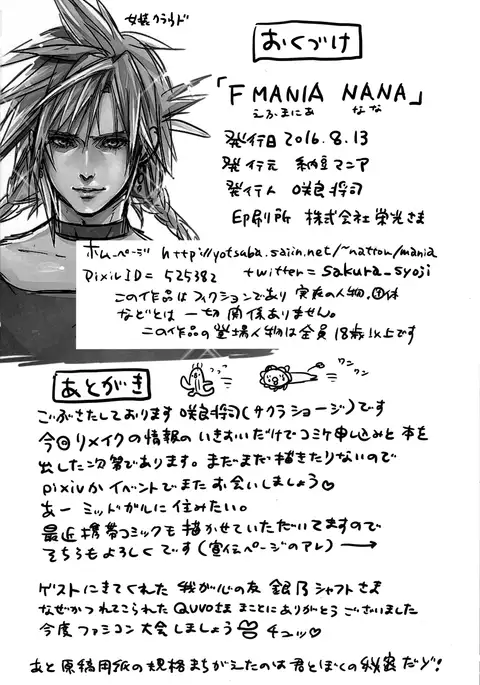 女装クラウド
おくづけ
「F MANIA NANA」
えふまにあ なな
発行日 2016.8.13
発行元 納豆マニア
発行人 咲良将司
印刷所 株式会社栄光さま
ホームページ http://yotsuba.saiin.net/~nattou/mania
Pixiv ID= 525382 twitter= sakura_syoji
この作品はフィクションであり 実在の人物、団体
などとは 一切関係ありません。
この作品の登場人物は全員18歳以上です
あとがき
フッフッ
ワンワン
ごぶさたしております 咲良将司(サクラショージ)です
今回リメイクの情報のいきおいだけでコミケ申し込みと本を
出した次第であります。まだまだ描きたりないので
pixivかイベントでまたお会いしましょう♡
あー ミッドガルに住みたい。
最近携帯コミックも描かせていただいてますので
そちらもよろしくです(宣伝ページのアレ)→
ゲストにきてくれた 我が心の友 銀乃シャフトさま
なぜかつれてこられたQUVOさま まことにありがとうございました
今度ファミコン大会しましょう チュッ♡
あと原稿用紙の規格まちがえたのは君とぼくの秘密だゾ!